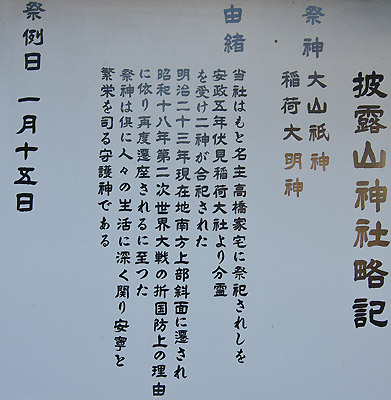 披露山神社略記
祭神 大山祗神
稲荷大明神
由緒
当社はもと名主高橋家宅に祭祀されしを
安政五年伏見稲荷大社より分霊
を受け二神が合祀された
明治二十三年現在地南方上部斜面に遷され
昭和十八年第二次世界大戦の折国防上の理由
に依り再度遷座されるに至つた
祭神は倶に人々の生活に深く関り安寧と
繁栄を司る守護神である
祭例日 一月十五日